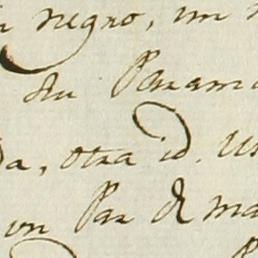 negro, un
su Panama
da, otra id. Un
un Par de ma